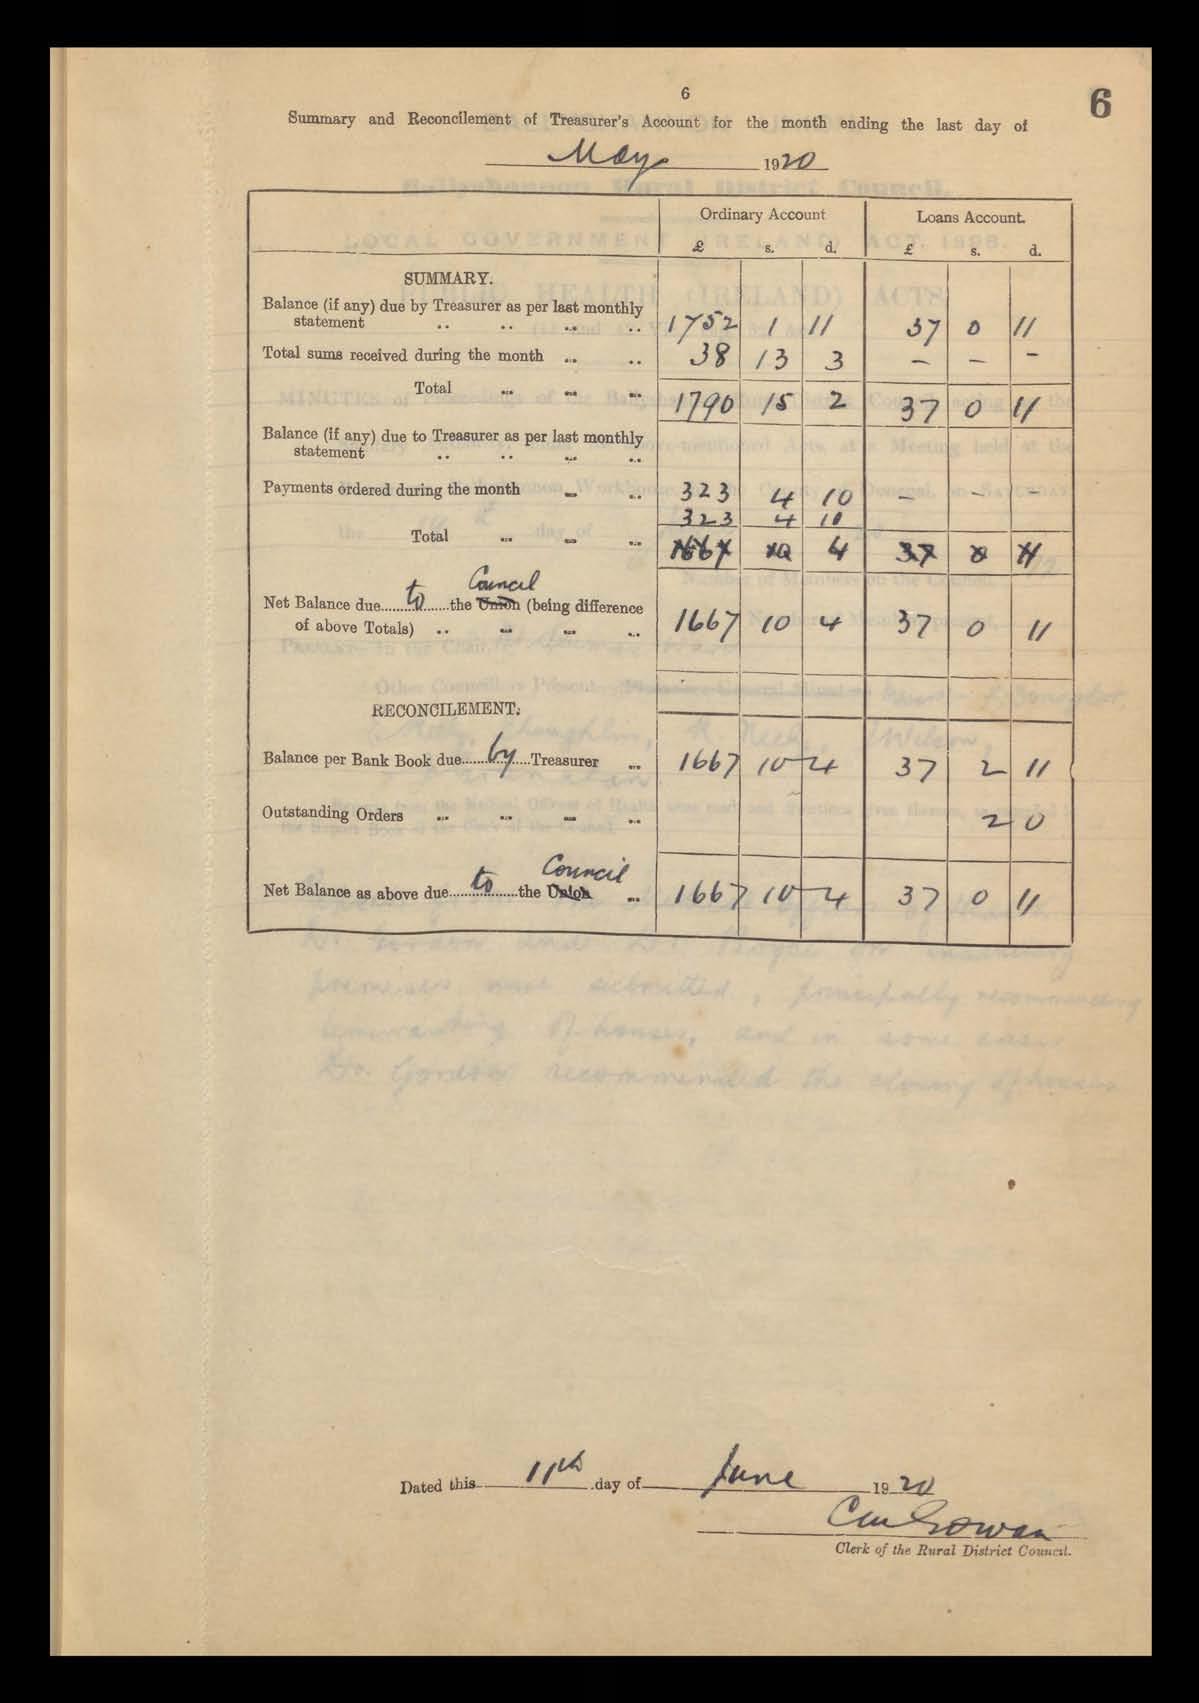 6
6
Summary and Reconcilement of Treasurer's Account for the month ending the last day of
May 1920
Ordinary Account Loans Account.
£ s. d. £ s. d.
SUMMARY.
Balance (if any) due by Treasurer as per last monthly
statement .. .. .. .. 1752 1 11 37 0 11
Total sums received during the month .. .. 38 13 3 – – –
Total .. .. .. 1790 15 2 37 0 11
Balance (if any) due to Treasurer as per last monthly
statement .. .. .. ..
Payments ordered during the month .. .. 323 4 10 – – –
323 4 10
Total .. .. .. 1667 10 4 37 0 11
Council
Net Balance due to the Union (being difference
of above Totals) .. .. .. .. 1667 10 4 37 0 11
RECONCILEMENT.
Balance per Bank Book due by Treasurer .. 1667 10 4 37 2 11
Outstanding Orders .. .. .. .. 2 0
Council
Net Balance as above due to the Union .. 1667 10 4 37 0 11
Dated this 11th day of June 1920
Clerk of the Rural District Council.